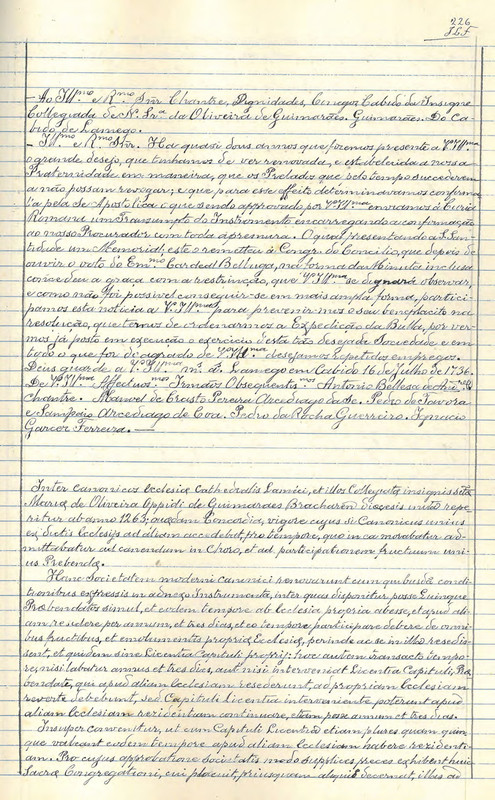 226
- Ao Ill.mo e R.mo Snr Chantre, Dignidades, Conegos Cabido da Insigne
Collegiada de N. Sr.a da Oliveira de Guimarães. Guimarães. Do Ca-
bido de Lamego.
- Ill.mo e R.mo Snr. Ha quasi dous annos que fizemos presente a V.ª Ill.ma
o grande desejo, que tinhamos de ver renovada, e estabelecida a nossa
Fraternidade em maneira, que os Prelados que pelo tempo succederem
a não possam revogar; e que para este effeito determinavamos confirma-
la pela Se Apostolica e que sendo approvado por V.ª Ill.ma enviamos á Curia
Romana um Transumpto do Instromento encarregando a confirmação
ao nosso Procurador com toda a pressura. O qual presentando a S. San-
tidade um Memorial, este o remetteu á Congr. do Concilio, que depois de
ouvir o voto do Em.mo Cardeal Belluga, na forma da Minuta inclusa
concedeu a graça com a restrincção, que V.ª Ill.ma se dignará observar,
e como não foi possivel conseguir-se em mais ampla forma, partici-
pamos esta noticia a V.ª Ill.ma para prevenir-mos o seu beneplacito na
resolução, que temos de ordenarmos a Expedição da Bulla, por ver-
mos já posto em execução o exercicio desta tão desejada Sociedade e em
tudo o que for do agrado de V.ª Ill.ma desejamos repetidos empregos.
Deus guarde a V.ª Ill.ma m.s a. Lamego em Cabido 16 de Julho de 1736.
De V.ª Ill.ma Affectuos.os Irmãos Obsequentes.mos Antonio
Chantre. Manoel de Crasto Pereira Arcediago da Se. Pedro de Tavora
e Sampaio Arcediago de Coa. Pedro da Rocha Guerreiro. Ignacio
Garcez Ferreira. —
Inter canonicos Ecclesiæ Cathedralis Lameci, et illos Collegiatæ insignis Stæ
Mariæ de Oliveira Oppidi de Guimaraes Bracharen Diæcesis initio repe-
ritur ab anno 1263, quædam Concordia, vigore cujus si Canonicus unius
ex dictis Ecclesijs ad aliam accedebat, pro tempore, quo in ea morabatur ad-
mittabatur ad canendum in Choro, et ad participationem fructium unius
ius Prebendæ.
Hanc Societatem moderni canonici renovarunt cum quibusdã condi-
tionibus expressis in adnexo Instrumento, inter quas disponitur, posse Quinque
Præbendatos simul, et eodem tempore ab Ecclesia propria abesse, et apud ali-
am residere per annum, et tres dies, et eo tempore participare debere de omni-
bus fructibus, et emolumentis propriæ Ecclesiæ, perinde ac se in illa resedis-
sent, et quidem sine Licentia Capituli proprij: hoc autem transacto tempo-
re, nisi labatur annus et tres dies, aut nisi interveniat Licentia Capituli, Præ-
bendati, qui apud aliam Ecclesiam resederunt, ad propriam ecclesiam
reverte debebunt, sed Capituli Licentia interveniente poterunt apud
aliam Ecclesiam rezidentiam continuare, etiam pose annum et tres dies.
Insuper convenitur, ut cum Capituli Licentia etiam plures quam quin-
que valeant eodem tempore apud aliam Ecclesiam habere rezidenti-
am. Pro cujus approbatione Societatis modo supplices preces exhibent huic
Sacræ Congregationi, cui placuit, priusquam aliquid decernat, illas ad